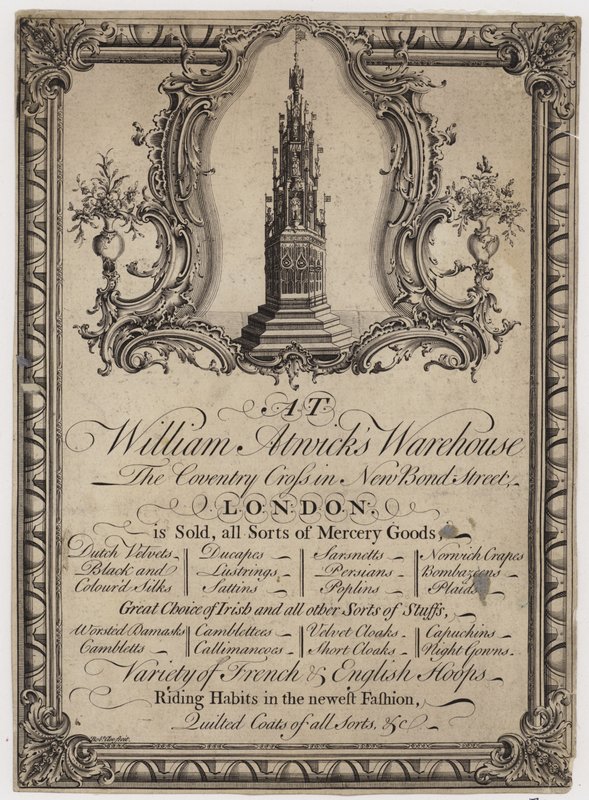 A·T·
William Atwick's Warehouse
The Coventry Croſs in New Bond Street,
L·O·N·D·O·N,
is Sold, all Sorts of Mercery Goods,
Dutch Velvets Ducapes Sarsnetts Norwich Crapes
Black and Lustrings Persians Bombazeens
Colour'd Silks Sattins Poplins Plaids
Great Choice of Irish and all other Sorts of Stuffs,
Worsted Damasks Camblettees Velvet Cloaks Capuchins
Cambletts Callimancoes Short Cloaks Night Gowns
Variety of French & English Hoops
Riding Habits in the neweſt Faſhion,
Quilted Coats of all Sorts, &c